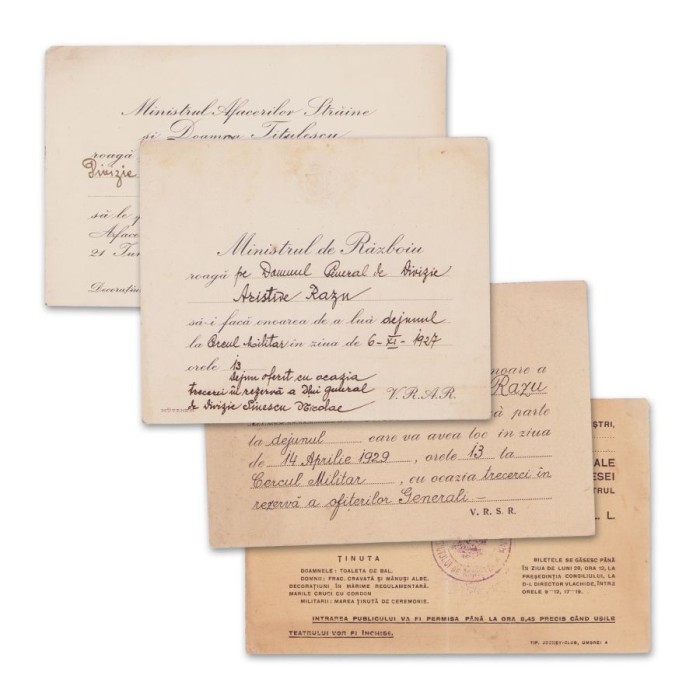 Ministrul Afacerilor Străine
și Doamna Titulescu
roagă
Divizie
să le
Aface
21 Iun
Decorațiu
Ministrul de Războiu
roagă pe Domnul General de Divizie
Aristide Razu
să-i facă onoarea de a luà dejunul
la Cercul Militar în ziua de 6-XI-1927
orele 13
Dejun oferit cu ocazia
trecerei în rezervă a D-lui general
de Divizie Sinescu Nicolae
V.R.A.R.
onoare a
Razu
să parte
la dejunul care va avea loc în ziua
de 14 Aprilie 1929, orele 13 la
Cercul Militar, cu ocazia trecerei în
rezervă a ofiterilor Generali -
V. R. S. R.
ȘTRI,
ALE
ESEI
TRUL
. L.
ȚINUTA
DOAMNELE: TOALETA DE BAL.
DOMNII: FRAC, CRAVATĂ ȘI MĂNUȘI ALBE.
DECORAȚIUNI ÎN MĂRIME REGULAMENTARĂ.
MARILE CRUCI CU CORDON
MILITARII: MAREA ȚINUTĂ DE CEREMONIE.
BILETELE SE GĂSESC PÂNĂ
ÎN ZIUA DE LUNI 28, ORA 12, LA
PREȘEDINȚIA CONSILIULUI, LA
D-L DIRECTOR VLACHIDE, ÎNTRE
ORELE 9—12, 17—19.
INTRAREA PUBLICULUI VA FI PERMISA PÂNĂ LA ORA 8,45 PRECIS CÂND UȘILE
TEATRULUI VOR FI ÎNCHISE.